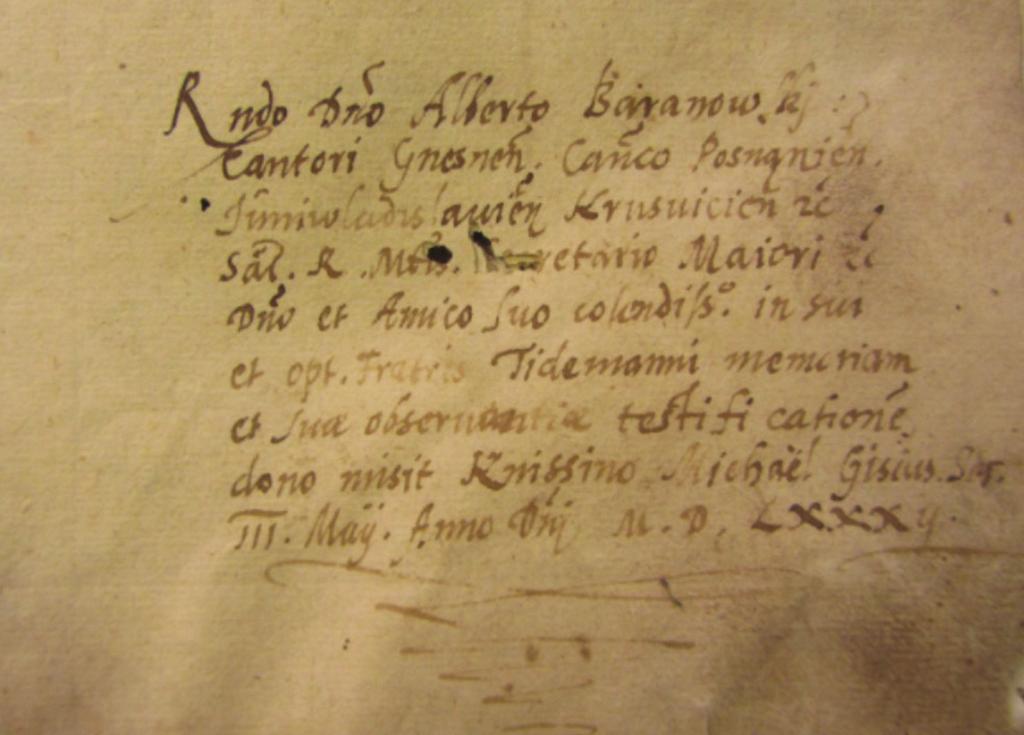 Rndo Dño Alberto Baranowskj
Cantori Gnesneñ. Cañco Posnanień.
Junиwladislauień Krusuicień &c
Sac. R. Mtis. Secretario Maiori &c
Dño et Amico suo colendiss°. in sui
et opt. Fratris Tidemanni memoriam
et suæ obseruantiæ testificationē
dono misit Knissino Michaël Gisius.
III. Maÿ. Anno Dñj M. D. LXXXij.